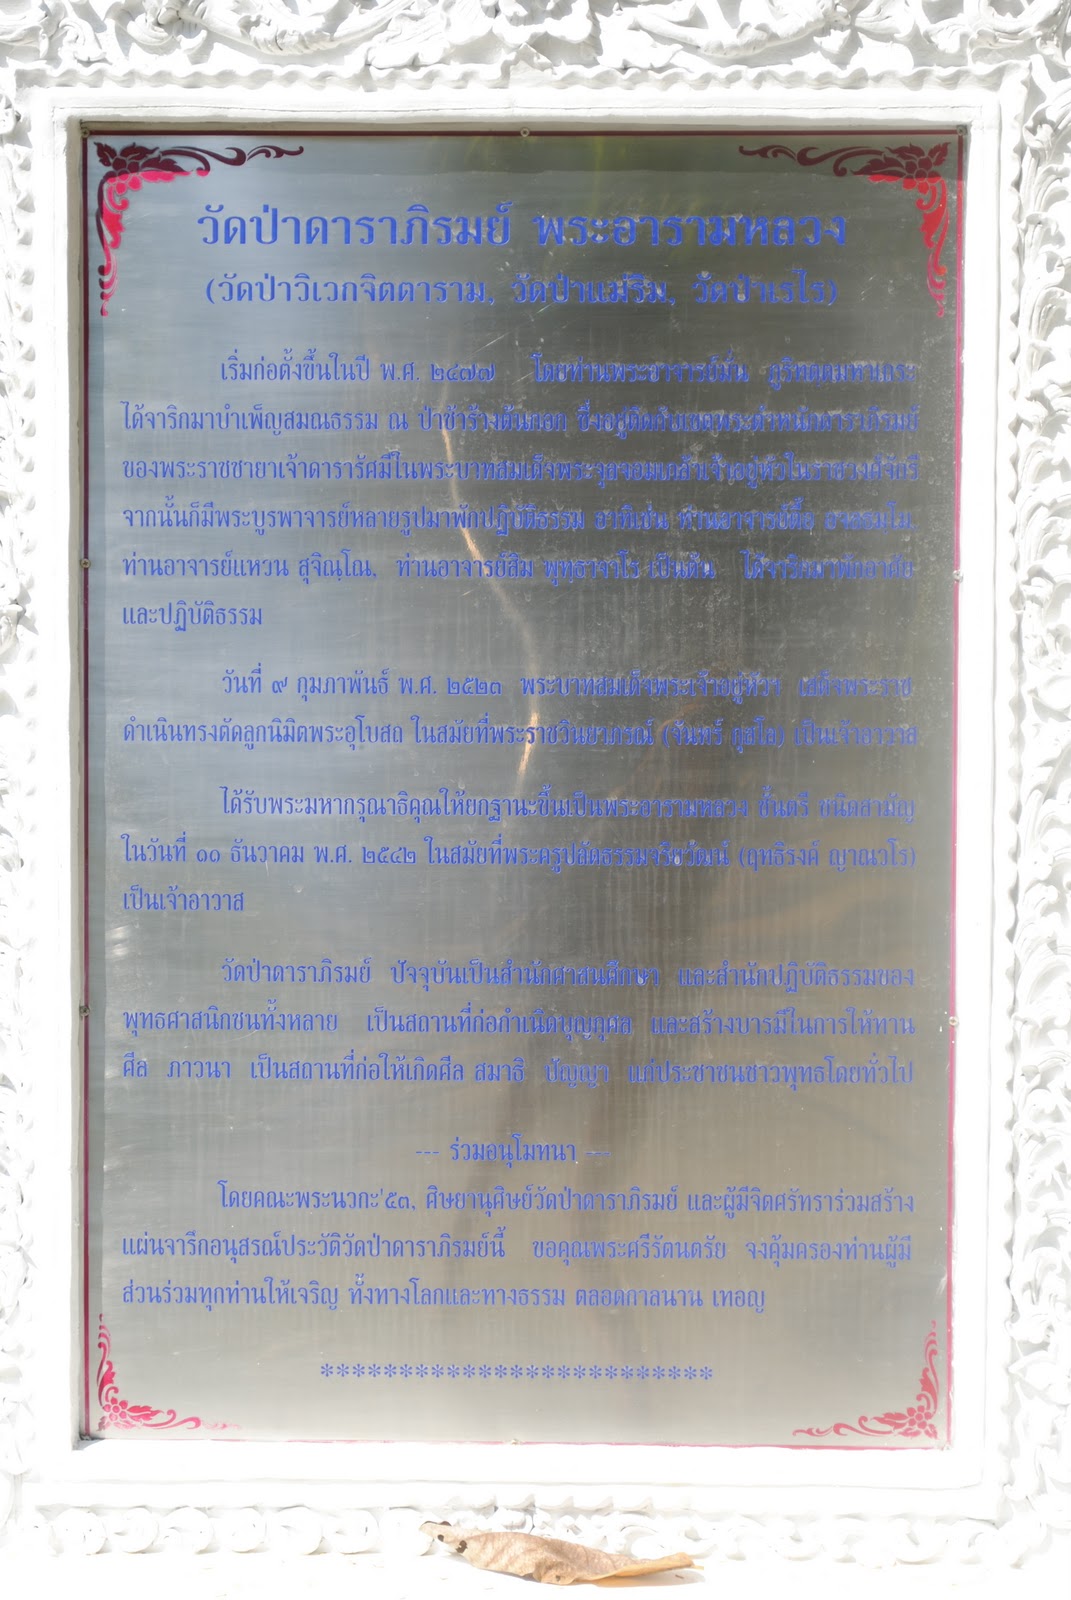 วัดป่าดาราภิรมย์ พระอารามหลวง
(วัดป่าวิเวกจิตตาราม, วัดป่าแม่ริม, วัดป่าเรไร)
เริ่มก่อตั้งขึ้นในปี พ.ศ. ๒๔๗๗ โดยท่านพระอาจารย์มั่น ภูริทตฺตมหาเถระ
ได้จาริกมาบำเพ็ญสมณธรรม ณ ป่าช้าร้างต้นกอก ซึ่งอยู่ติดกับเขตพระตำหนักดาราภิรมย์
ของพระราชชายาเจ้าดารารัศมีในพระบาทสมเด็จพระจุลจอมเกล้าเจ้าอยู่หัวในราชวงศ์จักรี
จากนั้นก็มีพระบูรพาจารย์หลายรูปมาพักปฏิบัติธรรม อาทิเช่น ท่านอาจารย์ตื้อ อจลธมฺโม,
ท่านอาจารย์แหวน สุจิณฺโณ, ท่านอาจารย์สิม พุทฺธาจาโร เป็นต้น ได้จาริกมาพักอาศัย
และปฏิบัติธรรม
วันที่ ๙ กุมภาพันธ์ พ.ศ. ๒๕๒๓ พระบาทสมเด็จพระเจ้าอยู่หัวฯ เสด็จพระราช
ดำเนินทรงตัดลูกนิมิตพระอุโบสถ ในสมัยที่พระราชวินยาภรณ์ (จันทร์ กุสโล) เป็นเจ้าอาวาส
ได้รับพระมหากรุณาธิคุณให้ยกฐานะขึ้นเป็นพระอารามหลวง ชั้นตรี ชนิดสามัญ
ในวันที่ ๑๑ ธันวาคม พ.ศ. ๒๕๔๒ ในสมัยที่พระครูปลัดธรรมจริยวัฒน์ (ฤทธิรงค์ ญาณวโร)
เป็นเจ้าอาวาส
วัดป่าดาราภิรมย์ ปัจจุบันเป็นสำนักศาสนศึกษา และสำนักปฏิบัติธรรมของ
พุทธศาสนิกชนทั้งหลาย เป็นสถานที่ก่อกำเนิดบุญกุศล และสร้างบารมีในการให้ทาน
ศีล ภาวนา เป็นสถานที่ก่อให้เกิดศีล สมาธิ ปัญญา แก่ประชาชนชาวพุทธโดยทั่วไป
--- ร่วมอนุโมทนา ---
โดยคณะพระนวกะ'๕๓, ศิษยานุศิษย์วัดป่าดาราภิรมย์ และผู้มีจิตศรัทธาร่วมสร้าง
แผ่นจารึกอนุสรณ์ประวัติวัดป่าดาราภิรมย์นี้ ขอคุณพระศรีรัตนตรัย จงคุ้มครองท่านผู้มี
ส่วนร่วมทุกท่านให้เจริญ ทั้งทางโลกและทางธรรม ตลอดกาลนาน เทอญ
*************************